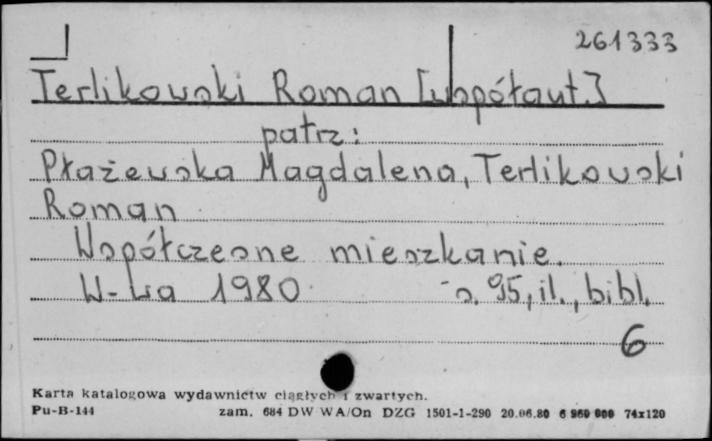 261333
Terlikowski Roman [współaut.]
patrz:
Płażewska Magdalena, Terlikowski
Roman
Współczesne mieszkanie.
W-wa 1980 s. 95, il., bibl.
6
Karta katalogowa wydawnictw ciągłych i zwartych.
Pu-B-144 zam. 684 DW WA/On DZG 1501-1-290 20.06.80 6 960 000 74x120